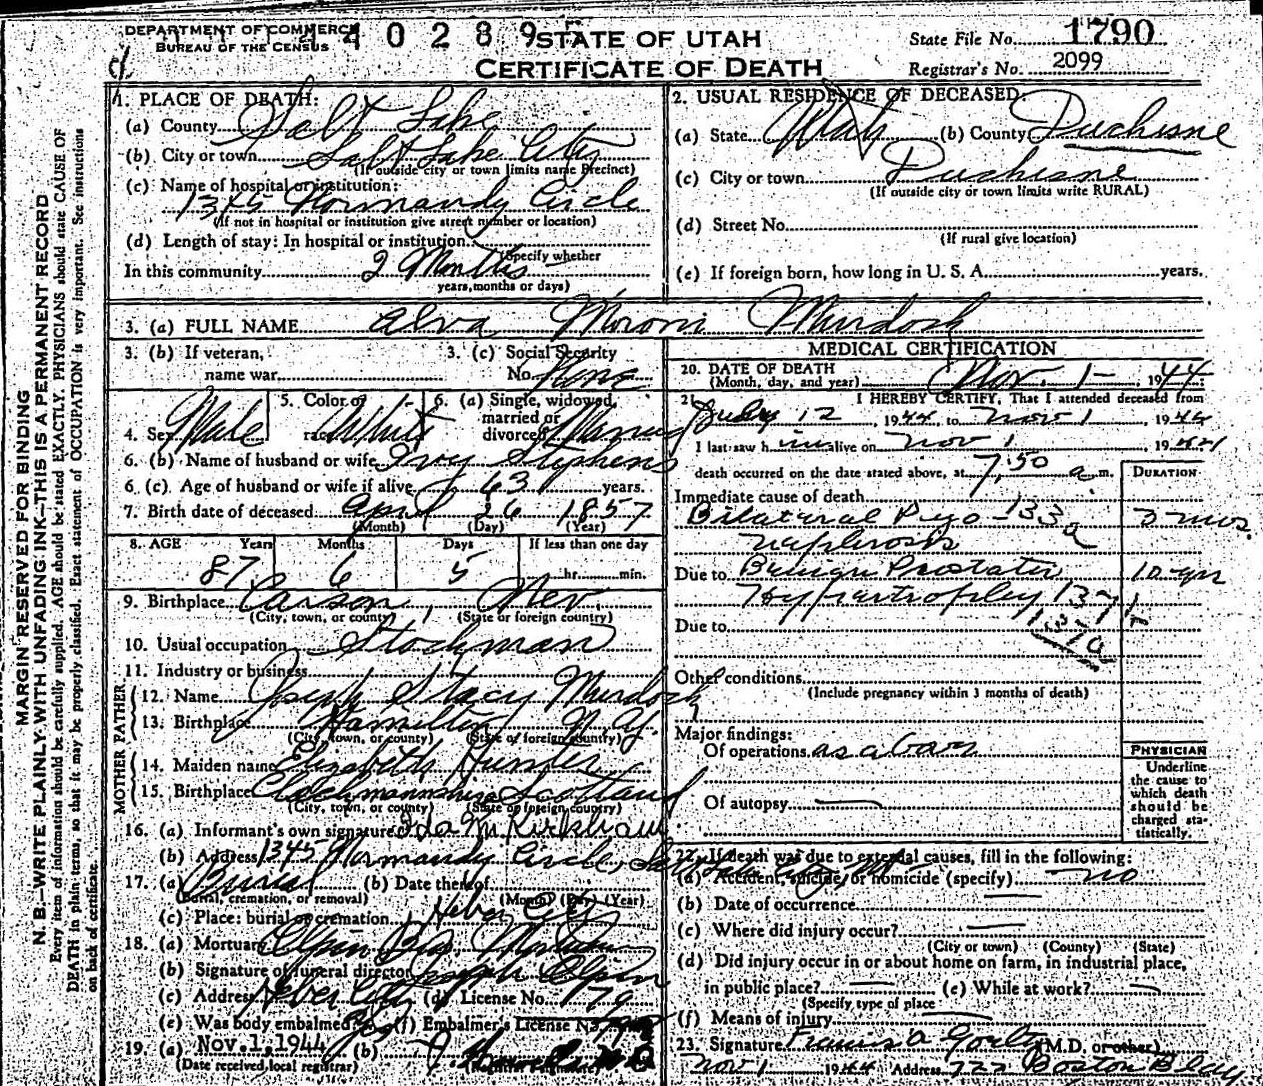 DEPARTMENT OF COMMERCE
BUREAU OF THE CENSUS
40289
STATE OF UTAH
CERTIFICATE OF DEATH
State File No. 1790
Registrar's No. 2099
MARGIN RESERVED FOR BINDING
N. B.—WRITE PLAINLY WITH UNFADING INK—THIS IS A PERMANENT RECORD
Every item of information should be carefully supplied. AGE should be stated EXACTLY. PHYSICIANS should state CAUSE OF
DEATH in plain terms, so that it may be properly classified. Exact statement of OCCUPATION is very important. See instructions
on back of certificate.
1. PLACE OF DEATH:
(a) County Salt Lake
(b) City or town Salt Lake City
(If outside city or town limits name Precinct)
(c) Name of hospital or institution:
1345 Normandy Circle
(If not in hospital or institution give street number or location)
(d) Length of stay: In hospital or institution
(Specify whether
In this community 2 Months
years, months or days)
2. USUAL RESIDENCE OF DECEASED:
(a) State Utah (b) County Duchesne
(c) City or town Duchesne
(If outside city or town limits write RURAL)
(d) Street No.
(If rural give location)
(e) If foreign born, how long in U. S. A. years.
3. (a) FULL NAME Alva Moroni Murdock
3. (b) If veteran,
name war
3. (c) Social Security
No. None
4. Sex Male
5. Color or
race White
6. (a) Single, widowed,
married or
divorced
6. (b) Name of husband or wife Ivey Stephens
6. (c). Age of husband or wife if alive 63 years.
7. Birth date of deceased April 26 1857
(Month) (Day) (Year)
8. AGE Years Months Days If less than one day
87 6 5 hr. min.
9. Birthplace Carson, Nev.
(City, town, or county) (State or foreign country)
10. Usual occupation Stockman
11. Industry or business
FATHER
12. Name Joseph Stacy Murdock
13. Birthplace Hamilton N.Y.
(City, town, or county) (State of foreign country)
MOTHER
14. Maiden name Elizabeth Hunter
15. Birthplace Clackmannshire Scotland
(City, town, or county) (State or foreign country)
16. (a) Informant's own signature Ida M. Kirkham
(b) Address 1345 Normandy Circle, Salt Lake City
17. (a) Burial (b) Date thereof
(Burial, cremation, or removal) (Month) (Day) (Year)
(c) Place: burial or cremation Heber City
18. (a) Mortuary Olpin Bros Mortuary
(b) Signature of funeral director Joseph Olpin
(c) Address Heber City (d) License No. 179
(e) Was body embalmed? Yes (f) Embalmer's License No.
19. (a) Nov. 1, 1944 (b)
(Date received local registrar)
MEDICAL CERTIFICATION
20. DATE OF DEATH
(Month, day, and year) Nov. 1- , 1944
21. I HEREBY CERTIFY, That I attended deceased from
July 12 , 1944, to Nov 1 , 1944
I last saw him alive on Nov 1 , 1944
death occurred on the date stated above, at 7:50 a. m.
DURATION
Immediate cause of death
Bilateral Pyo- 133a 3 mos.
nephrosis
Due to Benign Prostatic 10 yr
Hypertrophy 137
Due to
137a
Other conditions
(Include pregnancy within 3 months of death)
Major findings:
Of operations as above
Of autopsy —
PHYSICIAN
Underline
the cause to
which death
should be
charged sta-
tistically.
22. If death was due to external causes, fill in the following:
(a) Accident, suicide, or homicide (specify) no
(b) Date of occurrence —
(c) Where did injury occur? —
(City or town) (County) (State)
(d) Did injury occur in or about home on farm, in industrial place,
in public place? — (e) While at work? —
(Specify type of place
(f) Means of injury —
23. Signature Francis A Goeltz (M.D. or other)
Nov 1 1944 Address 722 Boston Bldg.